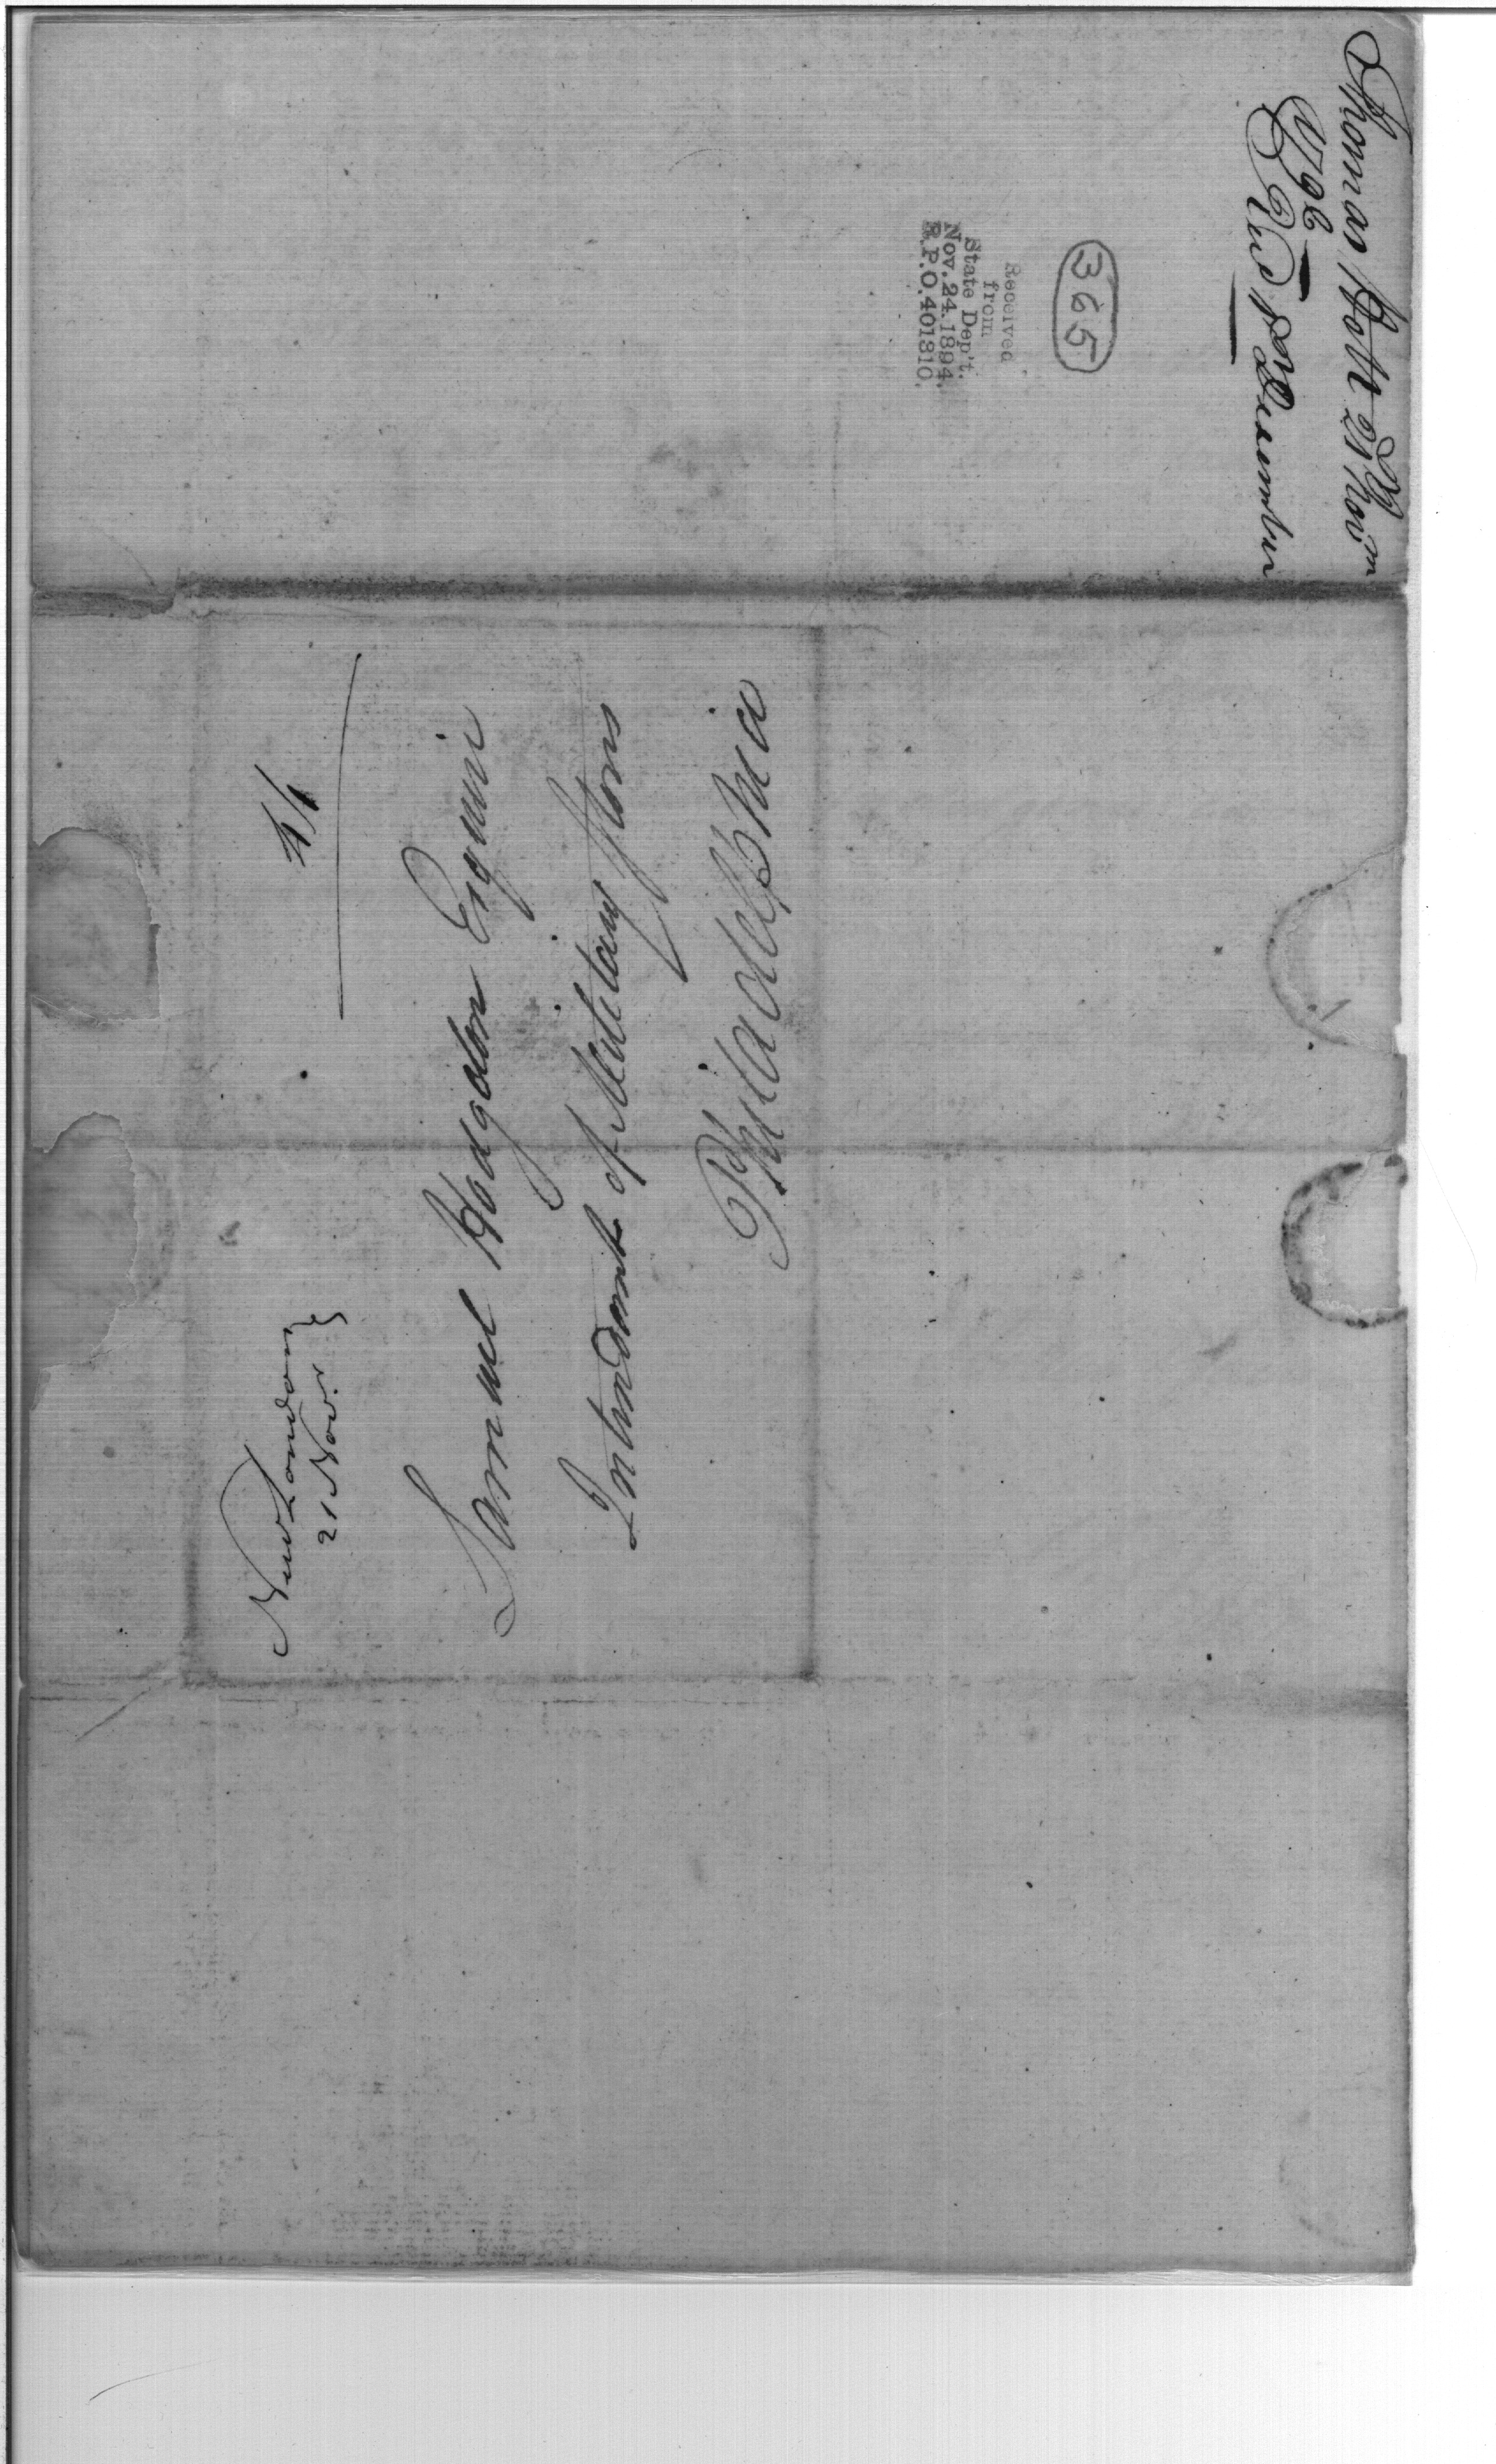 Thomas Bolt 21st Novm
1798
Recd 1st December
365
Received
from
State Dep't.
Nov. 24. 1894.
R.P.O. 401310.
New London
21 Nov.r
4/1
Samuel Hodgdon Esquire
Intendant of Military Stores
Philadelphia